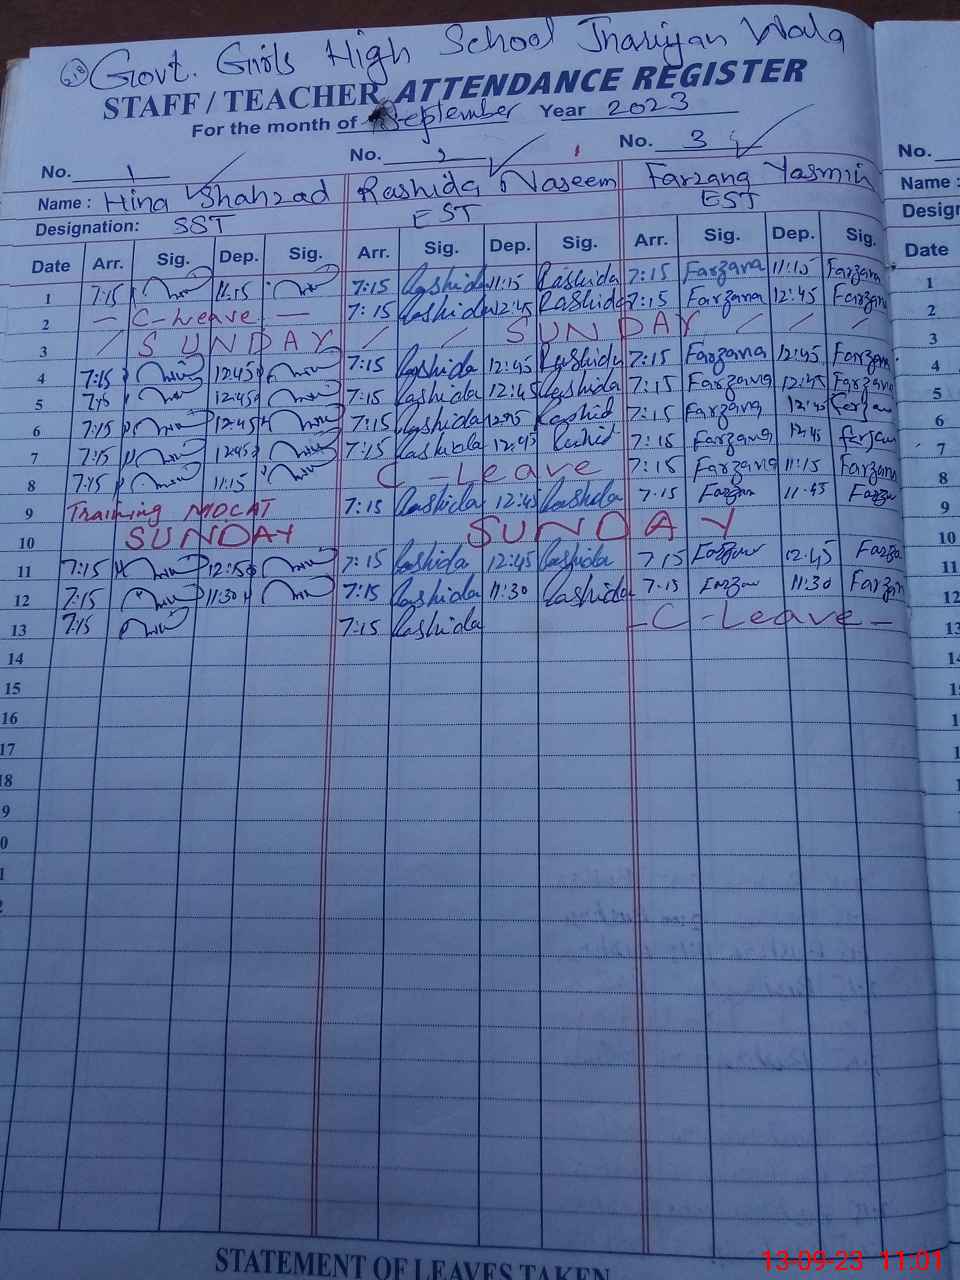 Govt. Girls High School Jhariyan Wala
STAFF / TEACHER ATTENDANCE REGISTER
For the month of September Year 2023
No. 1 No. 2 No. 3 No.
Name : Hina Shahzad Rashida Naseem Farzana Yasmin Name :
Designation: SST EST EST Design
Date Arr. Sig. Dep. Sig. Arr. Sig. Dep. Sig. Arr. Sig. Dep. Sig. Date
1 7:15 11:15 7:15 Rashida 11:15 Rashida 7:15 Farzana 11:15 Farzana 1
2 — C-Leave — 7:15 Rashida 12:45 Rashida 7:15 Farzana 12:45 Farzana 2
3 SUNDAY SUNDAY 3
4 7:15 12:45 7:15 Rashida 12:45 Rashida 7:15 Farzana 12:45 Farzana 4
5 7:15 12:45 7:15 Rashida 12:45 Rashida 7:15 Farzana 12:45 Farzana 5
6 7:15 12:45 7:15 Rashida 12:45 Rashid 7:15 Farzana 12:45 Farzan 6
7 7:15 12:45 7:15 Rashida 12:45 7:15 Farzana 12:45 Farzan 7
8 7:15 11:15 C-Leave 7:15 Farzana 11:15 Farzana 8
9 Training MDCAT 7:15 Rashida 12:45 Rashida 7:15 Farzan 11:45 9
10 SUNDAY SUNDAY 10
11 7:15 12:15 7:15 Rashida 12:45 Rashida 7:15 12:45 Farza 11
12 7:15 11:30 7:15 Rashida 11:30 Rashida 7:15 11:30 Farzan 12
13 7:15 7:15 Rashida — C-Leave — 13
14 14
15 15
16
17
18
9
0
1
2
STATEMENT OF LEAVES TAKEN
13-09-23 11:01